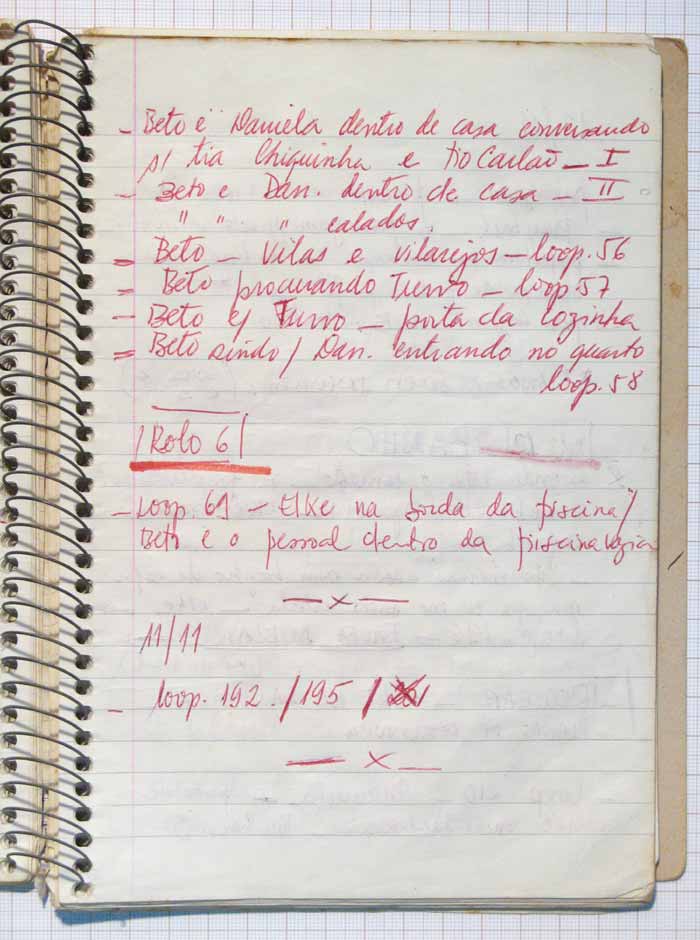 - Beto e Daniela dentro de casa conversando
p/ tia Chiquinha e tio Carlão - I
- Beto e Dan. dentro de casa - II
" " " calados.
= Beto - Vilas e vilarejos - loop. 56
= Beto procurando Turvo - loop 57
- Beto e/ Turvo - porta da cozinha
= Beto saindo / Dan. entrando no quarto
loop. 58
| Rolo 6 |
- Loop. 61 - Elke na borda da piscina /
Beto e o pessoal dentro da piscina vazia
- x -
11/11
- loop. 192. / 195 /
- x -